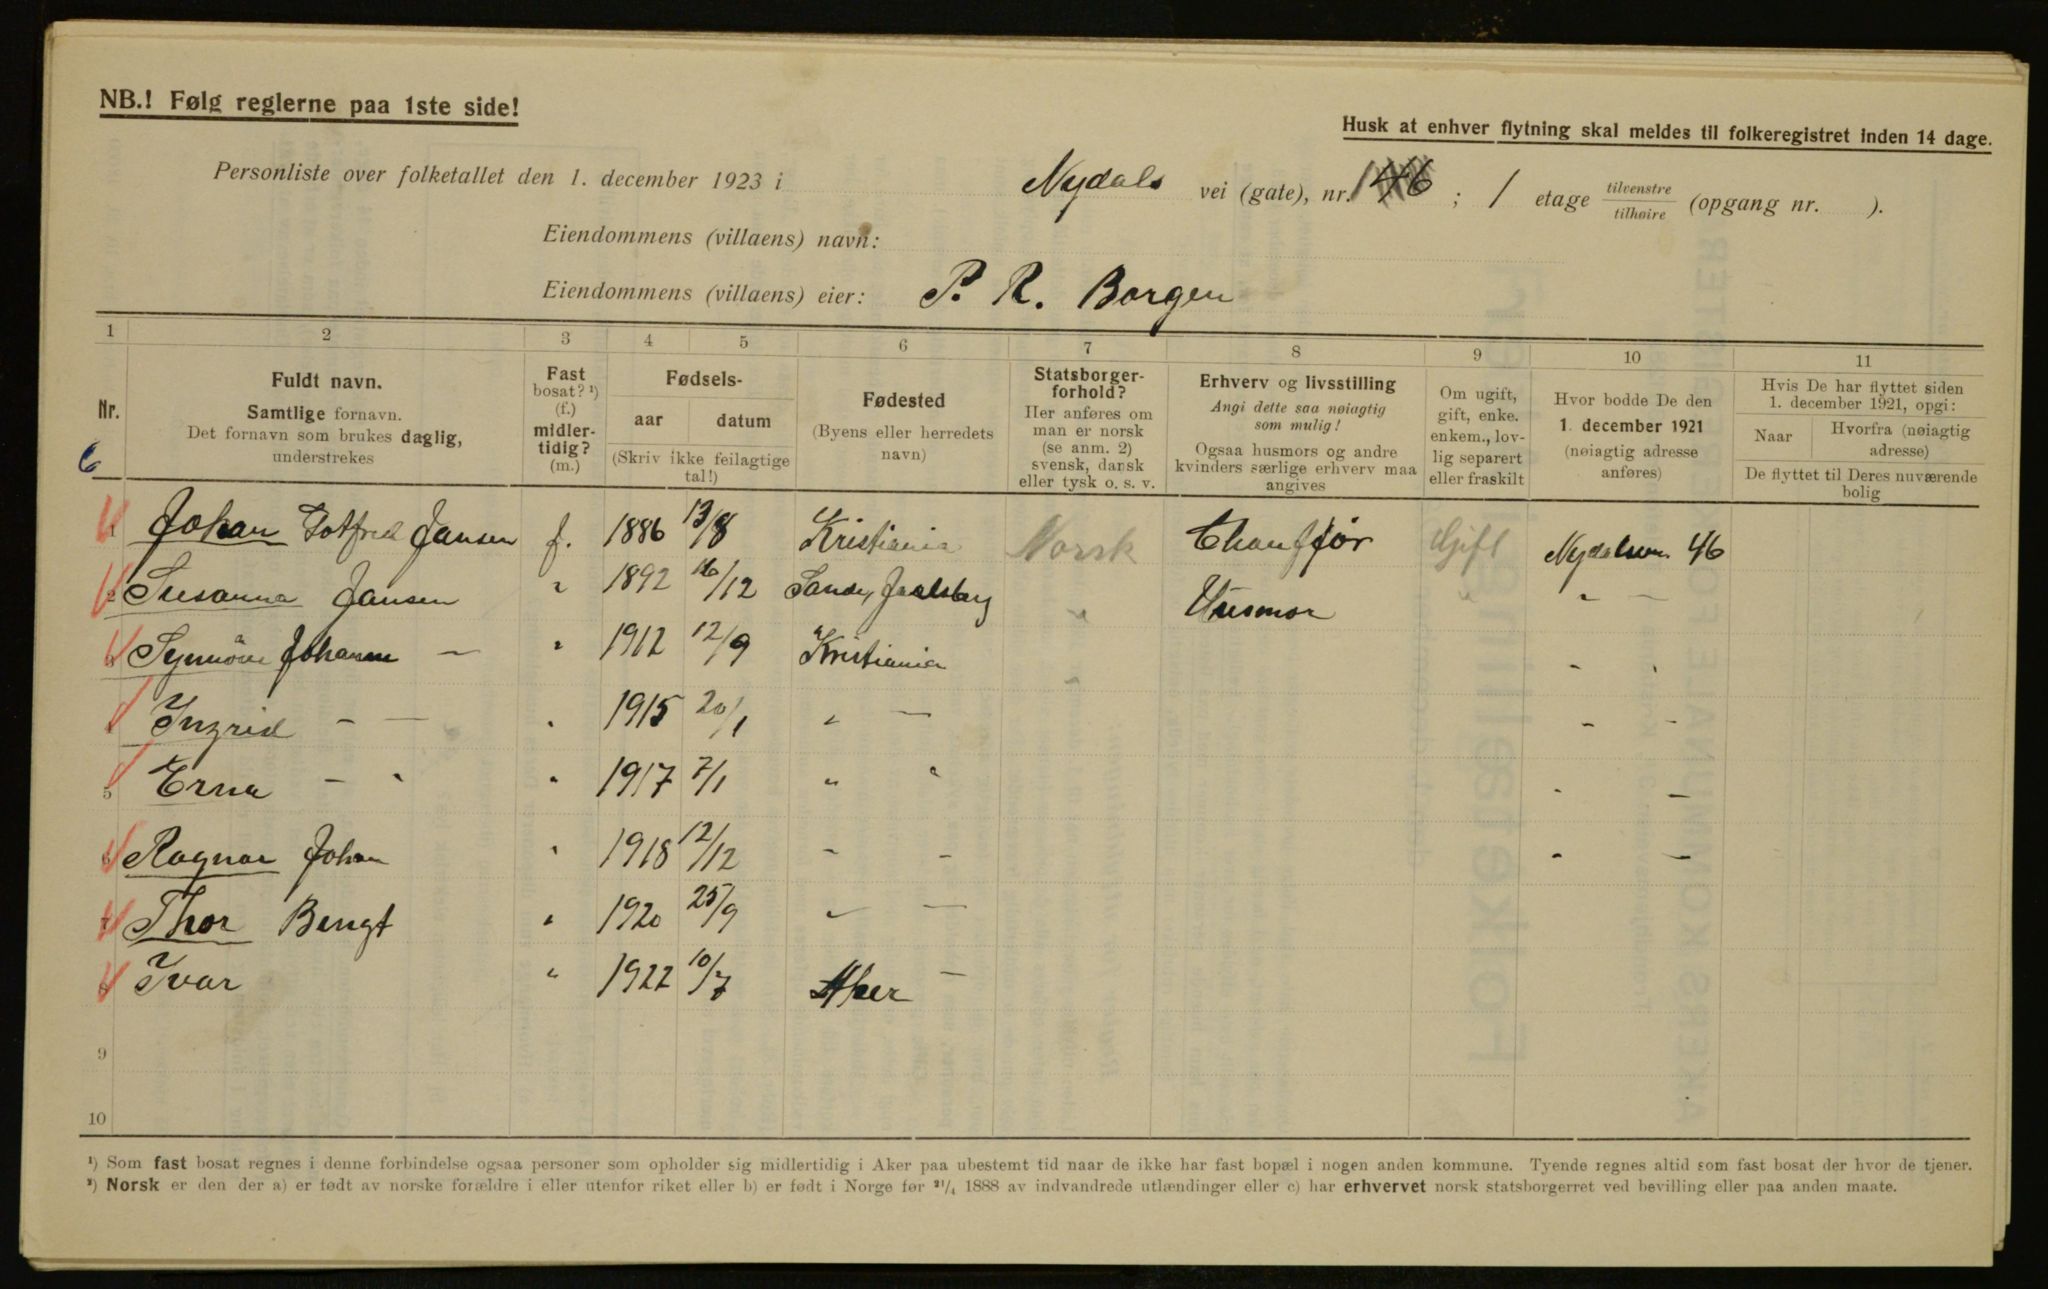 NB.! Følg reglerne paa 1ste side!
Husk at enhver flytning skal meldes til folkeregistret inden 14 dage.
Personliste over folketallet den 1. december 1923 i Nydals vei (gate), nr. 46 ; 1 etage tilvenstre / tilhøire (opgang nr. ).
Eiendommens (villaens) navn:
Eiendommens (villaens) eier: P. R. Borgen
1 2 3 4 5 6 7 8 9 10 11
Nr.
Fuldt navn.
Samtlige fornavn.
Det fornavn som brukes daglig, understrekes
Fast bosat? ¹) (f.) midlertidig? (m.)
Fødsels-
aar datum
(Skriv ikke feilagtige tal!)
Fødested
(Byens eller herredets navn)
Statsborgerforhold?
Her anføres om man er norsk (se anm. 2) svensk, dansk eller tysk o. s. v.
Erhverv og livsstilling
Angi dette saa nøiagtig som mulig!
Ogsaa husmors og andre kvinders særlige erhverv maa angives
Om ugift, gift, enke. enkem., lovlig separert eller fraskilt
Hvor bodde De den 1. december 1921 (nøiagtig adresse anføres)
Hvis De har flyttet siden 1. december 1921, opgi:
Naar Hvorfra (nøiagtig adresse)
De flyttet til Deres nuværende bolig
6
1 Johan Gotfred Jansen f. 1886 13/8 Kristiania Norsk Chauffør Gift Nydalsvn 46
2 Susanna Jansen " 1892 16/12 Sande, Jarlsberg " Husmor " " -
3 Synnöve Johanne - " 1912 12/9 Kristiania " " "
4 Ingrid - - " 1915 20/1 " - - -
5 Erna - " " 1917 7/1 " " " -
6 Ragnar Johan " 1918 12/12 " - " -
7 Thor Bengt " 1920 25/9 " -
8 Ivar " 1922 10/7 Aker -
9
10
¹) Som fast bosat regnes i denne forbindelse ogsaa personer som opholder sig midlertidig i Aker paa ubestemt tid naar de ikke har fast bopæl i nogen anden kommune. Tyende regnes altid som fast bosat der hvor de tjener.
²) Norsk er den der a) er født av norske forældre i eller utenfor riket eller b) er født i Norge før 21/4 1888 av indvandrede utlændinger eller c) har erhvervet norsk statsborgerret ved bevilling eller paa anden maate.